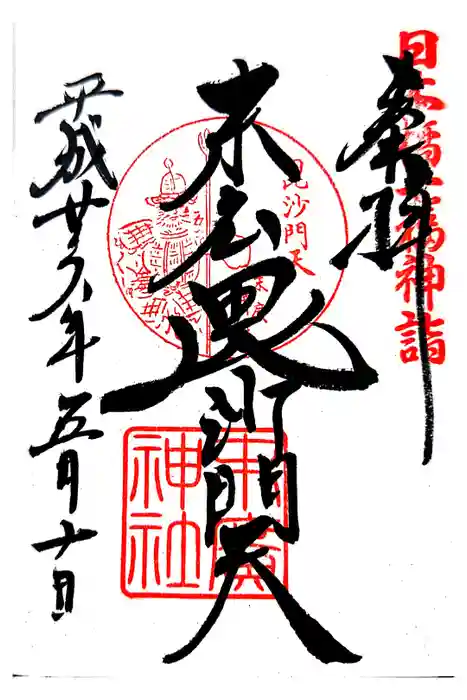 日本橋七福神詣
奉拝
末広
毘沙門天
毘沙門天
末廣
末廣神社
平成廿六年五月十日